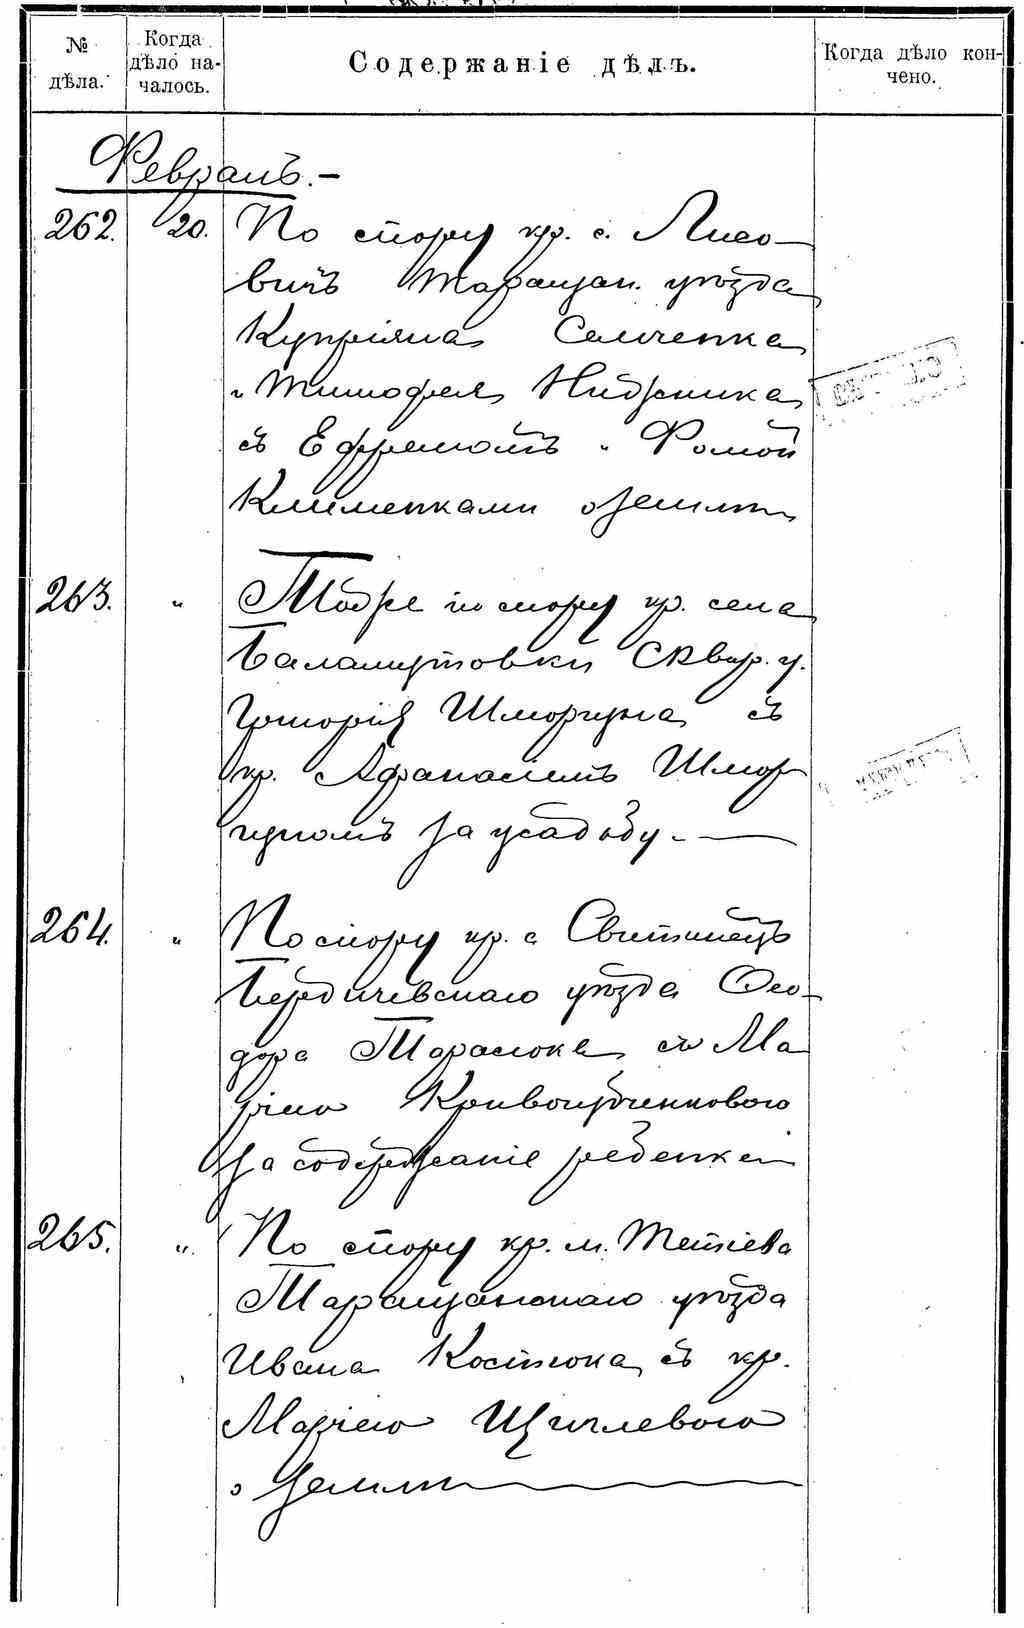 № дѣла.
Когда дѣло на-
чалось.
Содержаніе дѣлъ.
Когда дѣло кон-
чено.
Февраль.-
262. 20. По спору кр. с. Лисо-
вичъ Таращан. уѣзда
Купріяна Семченка
и Тимофея
съ Ефремомъ и Фомой
Клименками о землѣ
263. " Тоже по спору кр. села
Баламутовки Сквир. у.
Григорія Шморгуна съ
кр. Афанасіемъ Шмор
гуномъ за усадьбу. -
264. " По спору кр. с Свитинецъ
Бердичевскаго уѣзда Ѳео-
дора Тарасюка съ Ма
ріею
за содержаніе ребенка
265. " По спору кр. м. Тетіева
Таращанскаго уѣзда
Ивана Костюка съ кр.
Маріею Щиглевою
о землѣ